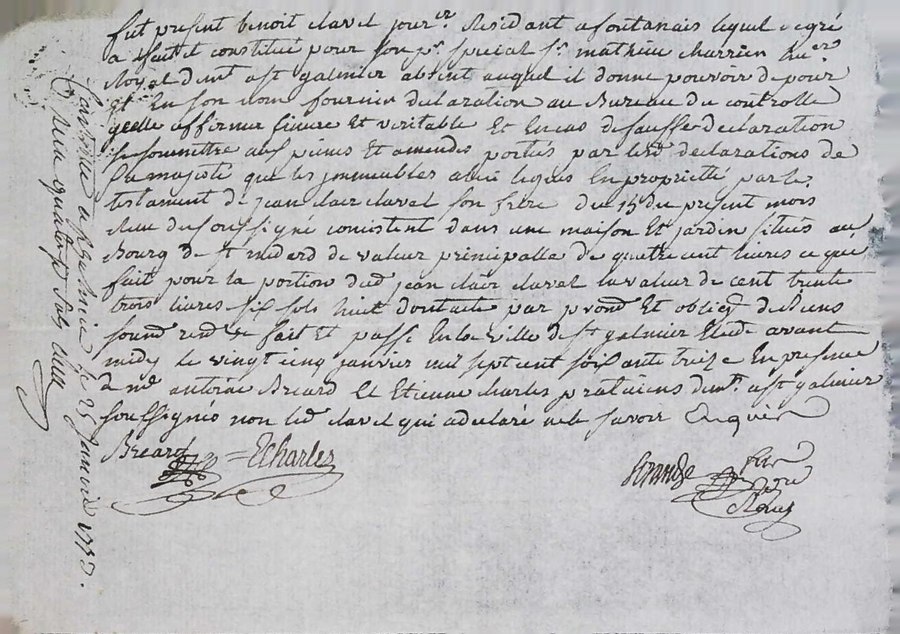 fut present benoit clavel jour.er residant a fontanais lequel de gré
a fait et constitué pour son p.r special s.r mathieu charrien hu.er
Royal dem.t a st galmier absent auquel il donne pouvoir de pour
et en son nom fournir declaration au Bureau du controlle
ycelle affirmer sincere et veritable et en cas de fausse declaration
se soumettre aux peines et amendes portés par les declarations de
sa majesté que les immeubles a lui legués en proprieté par le
testament de jean clair clavel son frere du 15 du present mois
Reçu du soussigné consistent dans une maison et jardin situés au
Bourg de st medard de valeur principalle de quattre cent livres ce qui
fait pour la portion dud jean clair clavel la valeur de cent trente
trois livres six sols huit dont acte par prom.d et oblig.n de biens
soum.d ren.d et fait et passé en la ville de st galmier Etude avant
midy le vingt cinq janvier mil sept cent soixante treize en presence
de me antoine Breard et Etienne charles praticiens dem.t a st galmier
soussignes non led clavel qui a declaré ne le savoir Enquis
Breard = Echarles
not Royal
Controlé a st galmier le 25 Janvier 1773.
Reçu quatorze sols